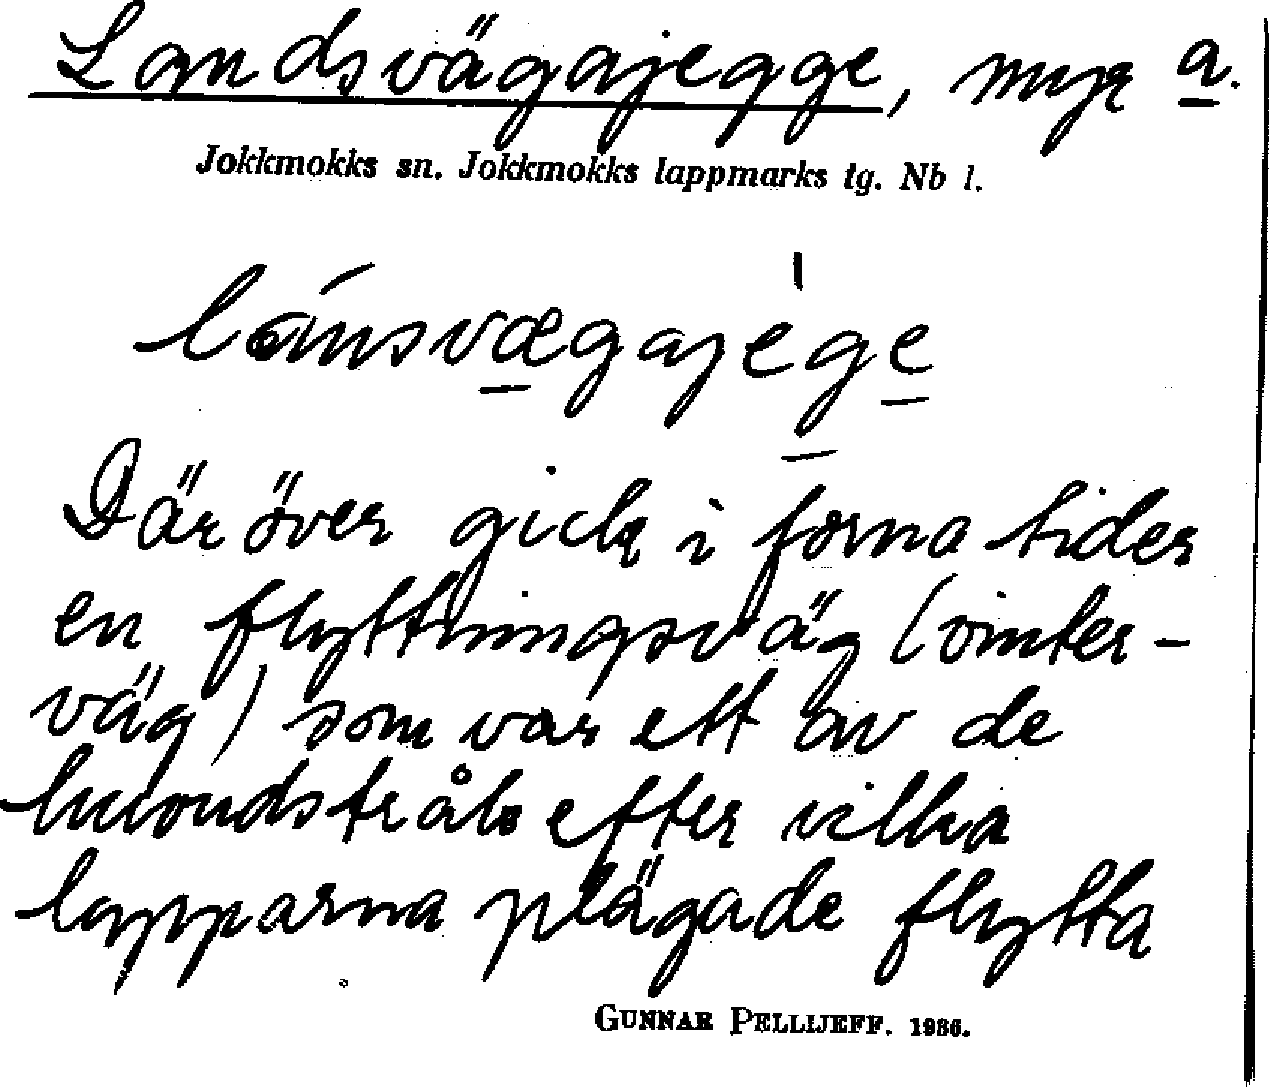 Landsvägajegge, myr a.
Jokkmokks sn. Jokkmokks lappmarks tg. Nb l.
lánsvægajege
Där över gick i forna tider
en flyttningsväg (vinter-
väg) som var ett av de
huvudstråk efter vilka
lapparna plägade flytta
GUNNAR PELLIJEFF. 1936.